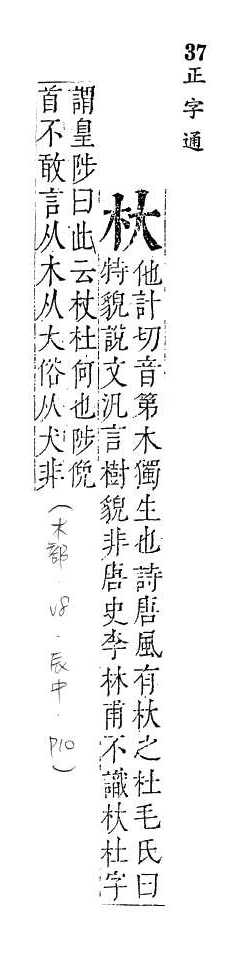 37正字通
杕
他計切音第木獨生也詩唐風有杕之杜毛氏曰
特貌說文汎言樹貌非唐史李林甫不識杕杜字
謂皇陟曰此云杖杜何也陟俛
首不敢言从木从大俗从犬非
(木部.v8.辰中.P10)